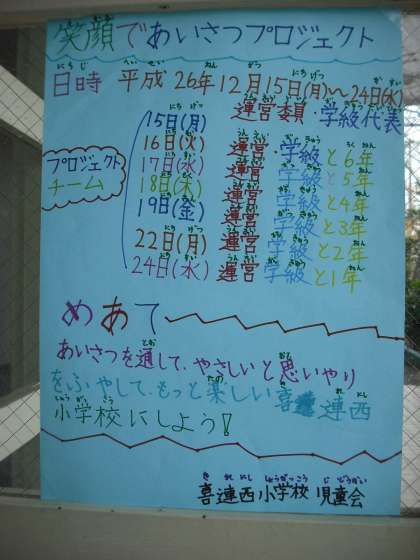 笑顔であいさつプロジェクト
日時 平成26年12月15日(月)〜24日(水)
15日(月) 運営委員・学級代表
16日(火) 運営・学級と6年
プロジェクトチーム
17日(水) 運営・学級と5年
18日(木) 運営・学級と4年
19日(金) 運営・学級と3年
22日(月) 運営・学級と2年
24日(水) 運営・学級と1年
めあて
あいさつを通して、やさしいと思いやり
をふやして、もっと楽しい喜連西
小学校にしよう!
喜連西小学校 児童会